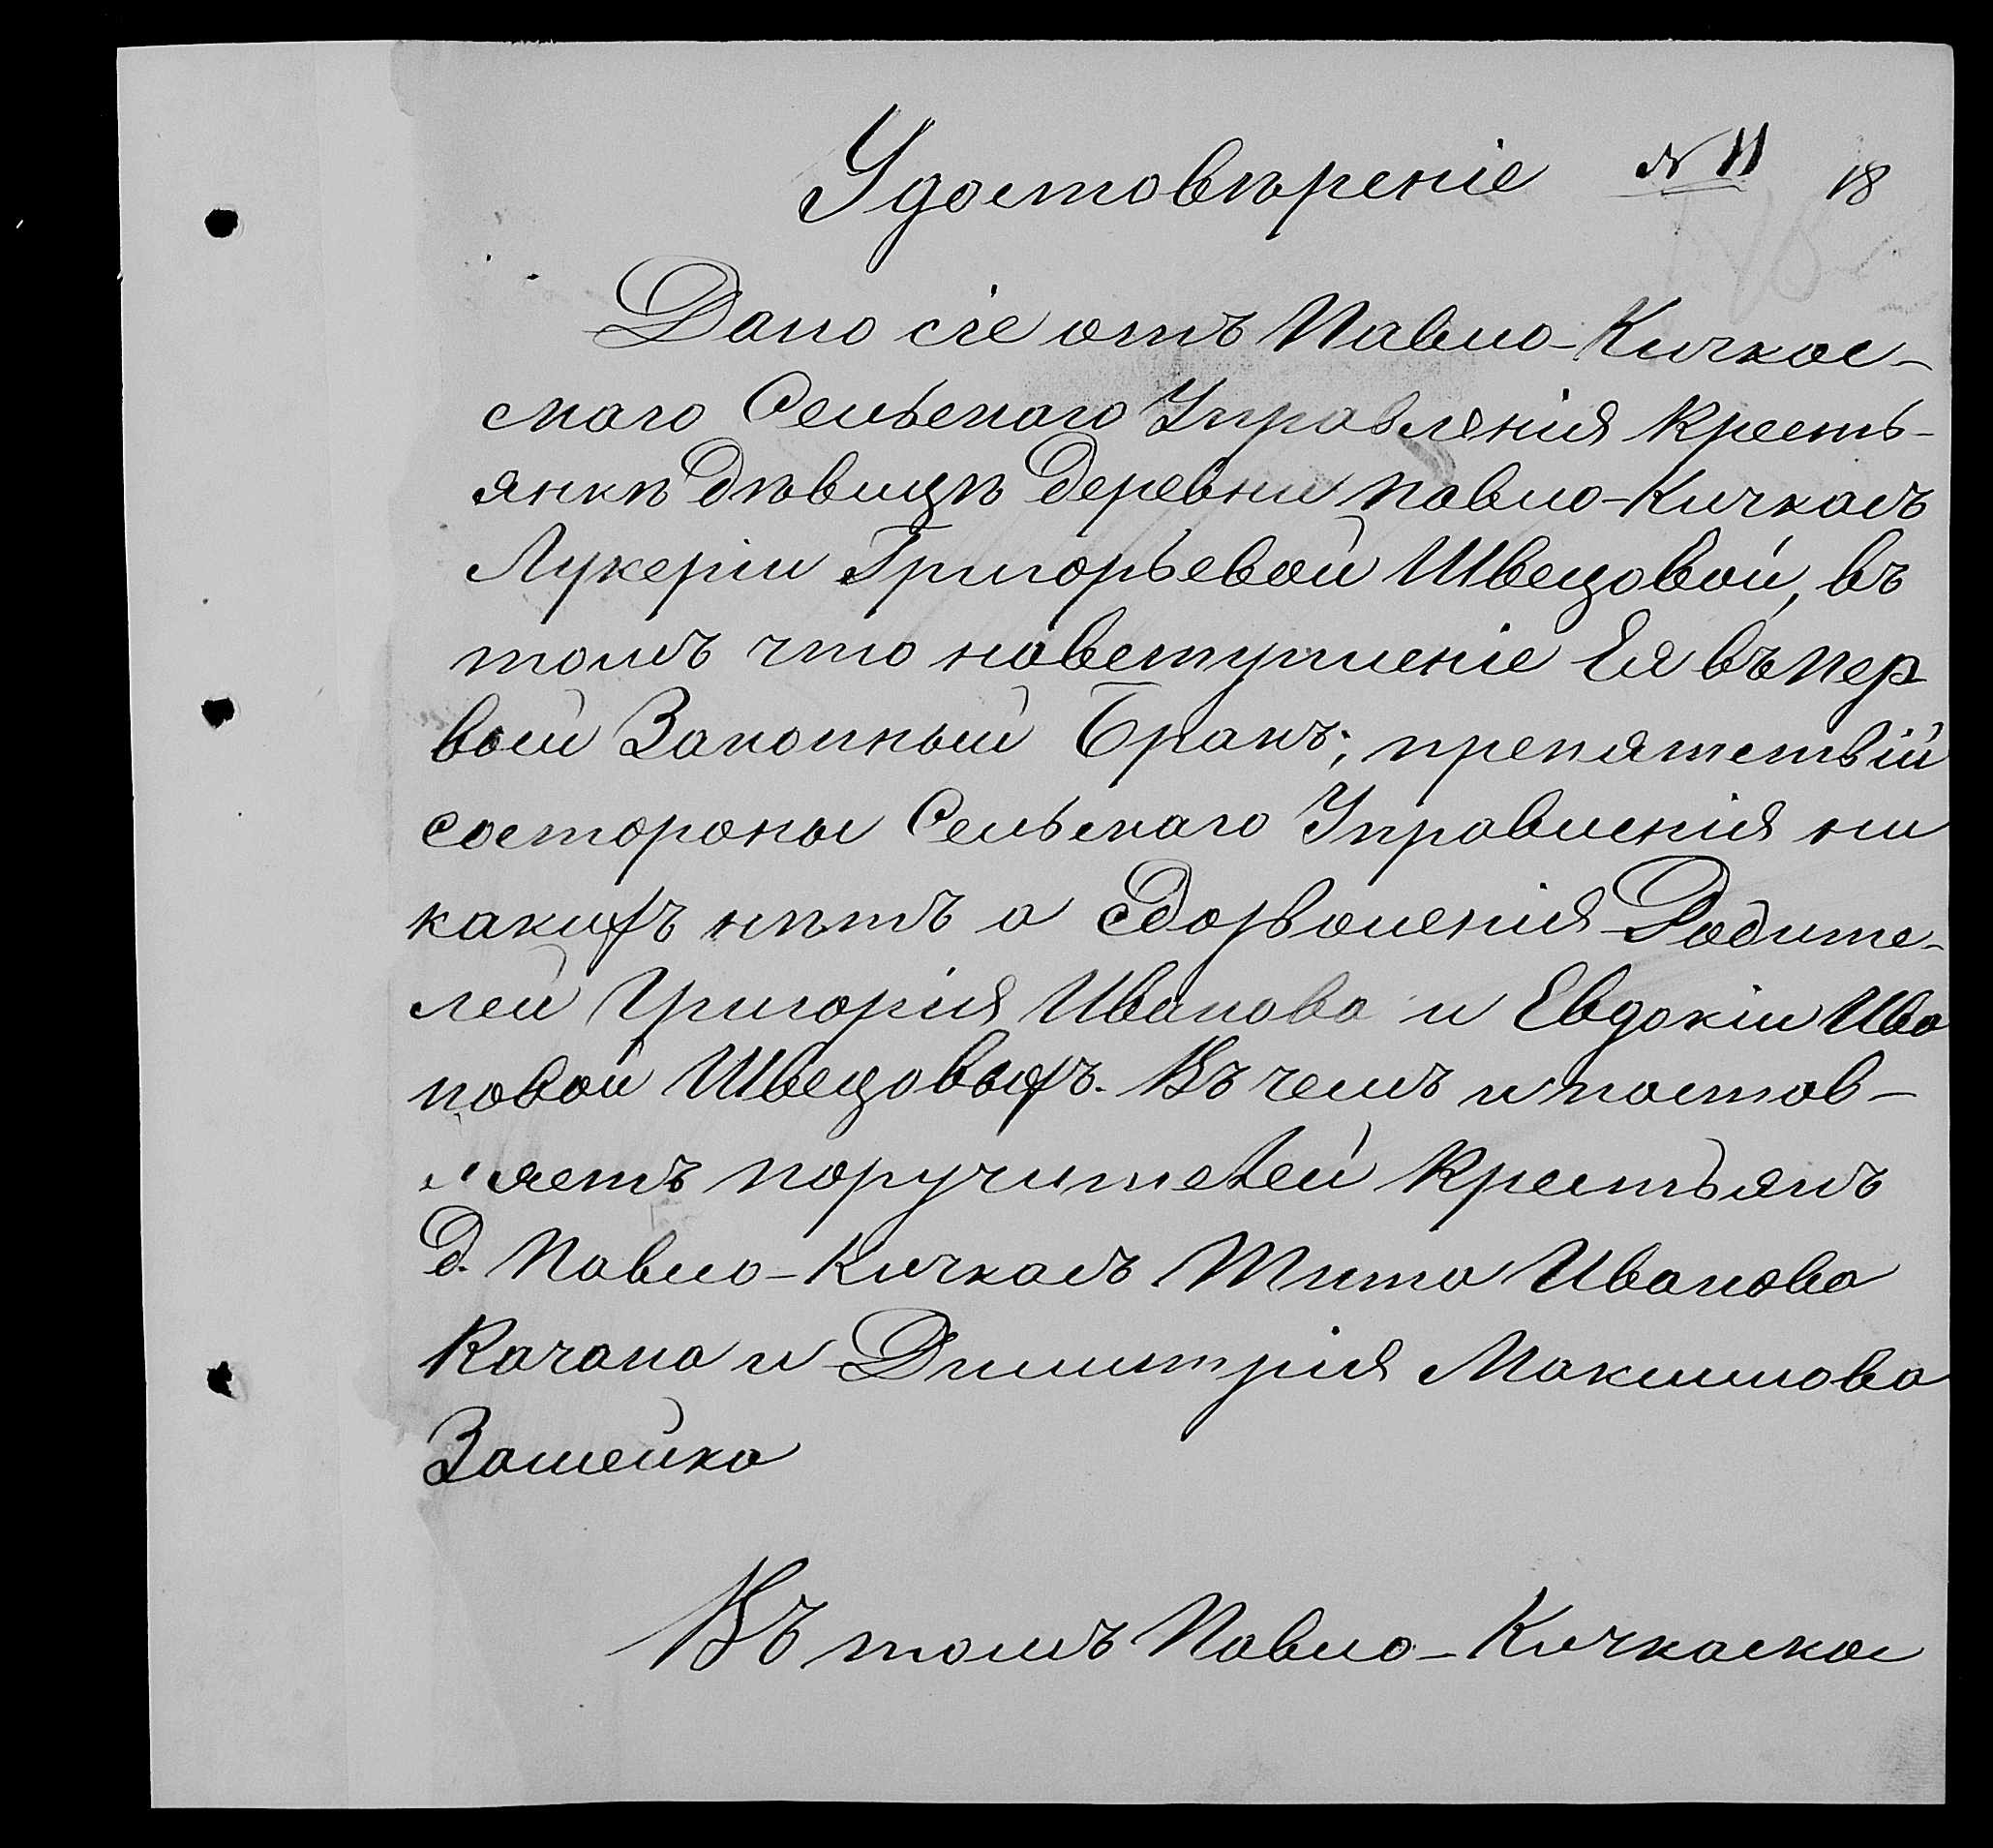 Удостовѣреніе № 11 18
Дано сіе отъ Павло-Кичкас-
скаго Сельскаго Управленія Кресть-
янкѣ Дѣвицѣ деревни Павло-Кичкасъ
Лукеріи Григорьевой Швецовой, въ
томъ что навступленіе Ея въ пер
вый Законный Бракъ; препятствій
состороны Сельскаго Управленія ни
какихъ нѣтъ а сдозволенія Родите-
лей Григорія Иванова и Евдокіи Ива
новой Швецовыхъ. Въ чемъ и постав-
ляетъ поручителей Крестьянъ
д. Павло-Кичкасъ Тита Иванова
Качана и Димитрія Максимова
Зашейка
Въ томъ Павло-Кичкаское